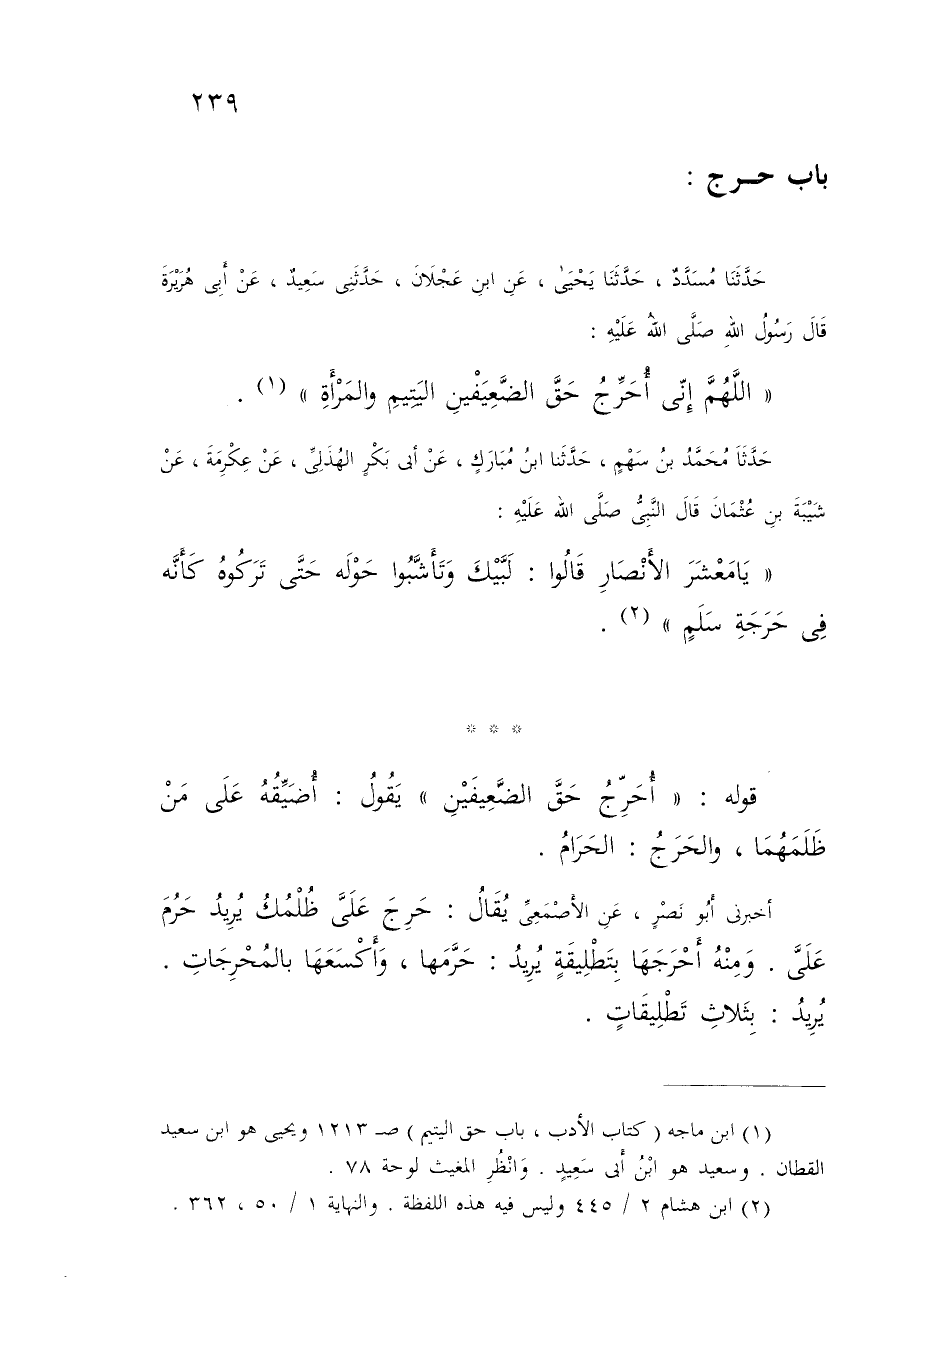 ٢٣٩
باب حـرج :
حَدَّثَنَا مُسَدَّدٌ ، حَدَّثَنَا يَحْيَىٰ ، عَنِ ابنِ عَجْلَانَ ، حَدَّثَنِى سَعِيدٌ ، عَنْ أَبِى هُرَيْرَةَ
قَالَ رَسُولُ اللهِ صَلَّى اللهُ عَلَيْهِ :
« اللَّهُمَّ إِنّى أُحَرِّجُ حَقَّ الضَّعِيَفْينِ اليَتِيمِ والمَرْأَةِ » (١) .
حَدَّثَاَ مُحَمَّدُ بنُ سَهْمٍ ، حَدَّثَنا ابنُ مُبَارَكٍ ، عَنْ أبى بَكْرٍ الهُذَلِىِّ ، عَنْ عِكْرِمَةَ ، عَنْ
شَيْبَةَ بنِ عُثْمَانَ قَالَ النَّبِىُّ صَلَّى الله عَلَيْهِ :
« يَامَعْشَرَ الأَنْصَارِ قَالُوا : لَبَّيْكَ وَتَأَشَّبُوا حَوْلَه حَتَّى تَرَكُوهُ كَأَنَّه
فِى حَرَجَةِ سَلَمٍ » (٢) .
* * *
قوله : « أُحَرِّجُ حَقَّ الضَّعِيفَيْنِ » يَقُولُ : أُضَيِّقُهُ عَلَى مَنْ
ظَلَمَهُمَا ، والحَرَجُ : الحَرَامُ .
أخبرنى أَبُو نَصْرٍ ، عَنِ الأَصْمَعِىِّ يُقَالُ : حَرِجَ عَلَىَّ ظُلْمُكُ يُرِيدُ حَرُمَ
عَلَىَّ . وَمِنْهُ أَحْرَجَهَا بِتَطْلِيقَةٍ يُرِيدُ : حَرَّمَها ، وَأَكْسَعَهَا بالمُحْرِجَاتِ .
يُرِيدُ : بِثَلاثِ تَطْلِيقَاتٍ .
(١) ابن ماجه ( كتاب الأدب ، باب حق اليتيم ) صـ ١٢١٣ ويحيى هو ابن سعيد
القطان . وسعيد هو ابْنُ أَبى سَعِيدٍ . وَانْظُرِ المغيث لوحة ٧٨ .
(٢) ابن هشام ٢ / ٤٤٥ وليس فيه هذه اللفظة . والنهاية ١ / ٥٠ ، ٣٦٢ .